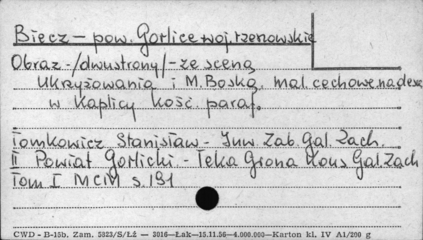 Biecz - pow. Gorlice woj. rzeszowskie
Obraz - /dwustrony/ - ze sceną
Ukrzyżowania i M. Boską, mal. cechowe na desce
w kaplicy kość. paraf.
Tomkowicz Stanisław - Inw. Zab. Gal. Zach.
II Powiat Gorlicki - Teka Grona Kons Gal. Zach
Tom I MCM s. 191
CWD - B-15b. Zam. 5822/S/Łź — 3016—Łak—15.11.56—4.000.000—Karton kl. IV A1/200 g